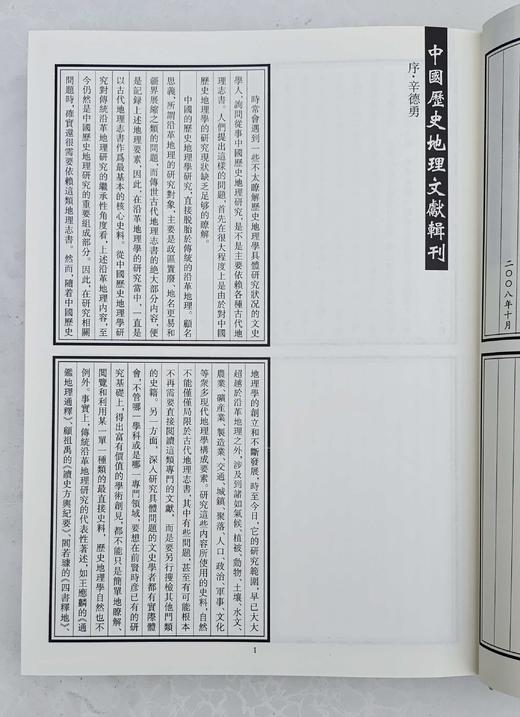 中國歷史地理文獻輯刊
序·辛德勇
時常會遇到一些不太瞭解歷史地理學具體研究狀況的文史
學人，詢問從事中國歷史地理研究，是不是主要依賴各種古代地
理志書。人們提出這樣的問題，首先在很大程度上是由於對中國
歷史地理學的研究現狀缺乏足够的瞭解。
中國的歷史地理學研究，直接脱胎於傳統的沿革地理。顧名
思義，所謂沿革地理的研究對象，主要是政區置廢、地名更易和
疆界展縮之類的問題，而傳世古代地理志書的絶大部分内容，便
是記録上述地理要素。因此，在沿革地理學的研究當中，一直是
以古代地理志書作爲最基本的核心史料。從中國歷史地理學研
究對傳統沿革地理研究的繼承性角度看，上述沿革地理内容，至
今仍然是中國歷史地理研究的重要組成部分。因此，在研究相關
問題時，確實還很需要依賴這類地理志書。然而，隨着中國歷史
地理學的創立和不斷發展，時至今日，它的研究範圍，早已大大
超越於沿革地理之外，涉及到諸如氣候、植被、動物、土壤、水文、
農業、礦産業、製造業、交通、城鎮、聚落、人口、政治、軍事、文化
等衆多現代地理學構成要素。研究這些内容所使用的史料，自然
不能僅僅局限於古代地理志書，其中有些問題，甚至有可能根本
不再需要直接閱讀這類專門的文獻，而是要另行搜檢其他門類
的史籍。另一方面，深入研究具體問題的文史學者都有實際體
會，不管哪一學科或是哪一專門領域，要想在前賢時彦已有的研
究基礎上，得出富有價值的學術創見，都不能只是簡單地瞭解、
閱覽和利用某一單一種類的最直接史料，歷史地理學自然也不
例外。事實上，傳統沿革地理研究的代表性著述，如王應麟的《通
鑑地理通釋》、顧祖禹的《讀史方輿紀要》、閻若璩的《四書釋地》、
1
二〇〇八年十月